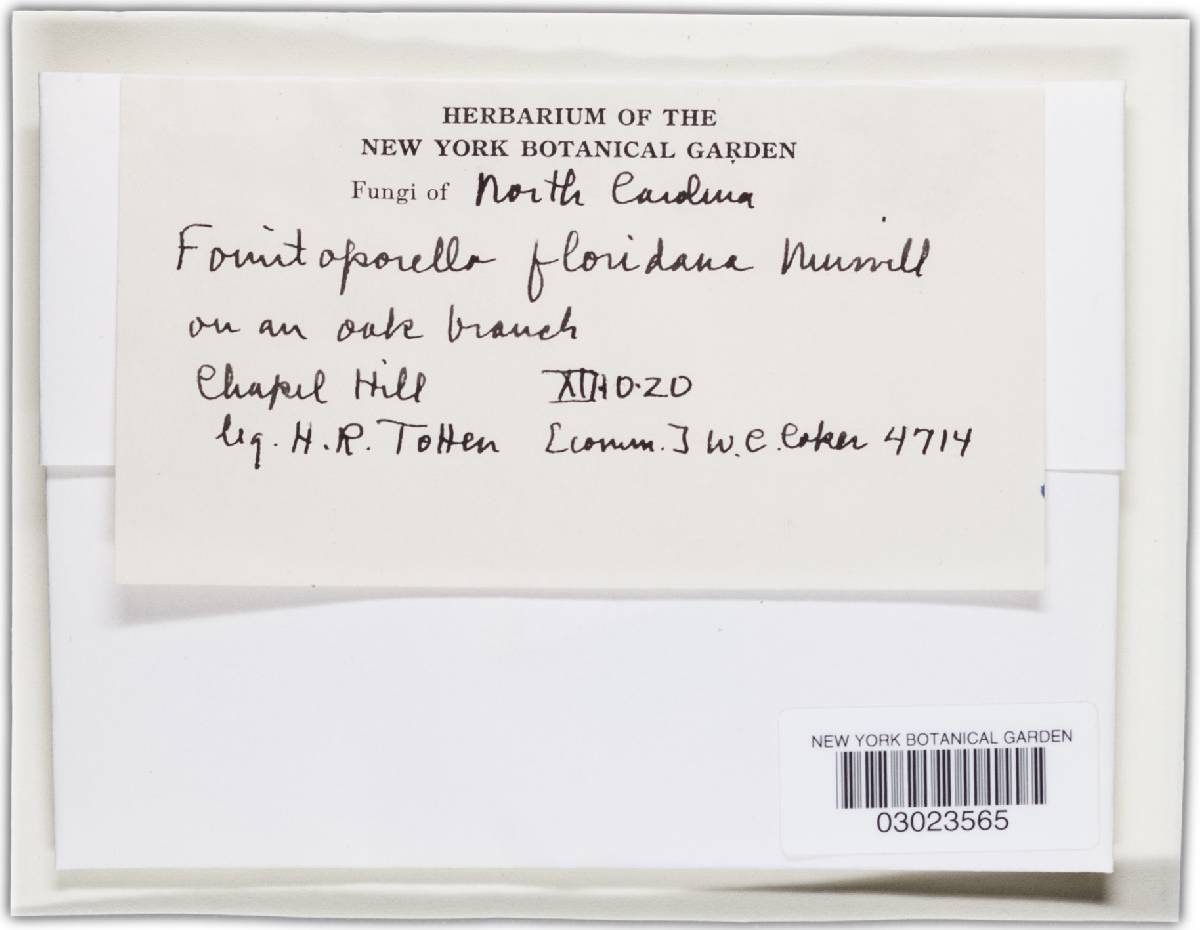 HERBARIUM OF THE
NEW YORK BOTANICAL GARDEN
Fungi of North Carolina
Fomitoporella floridana Murrill
on an oak branch
Chapel Hill
leg. H.R. Totten [comm.] W.C. Coker 4714
NEW YORK BOTANICAL GARDEN
03023565